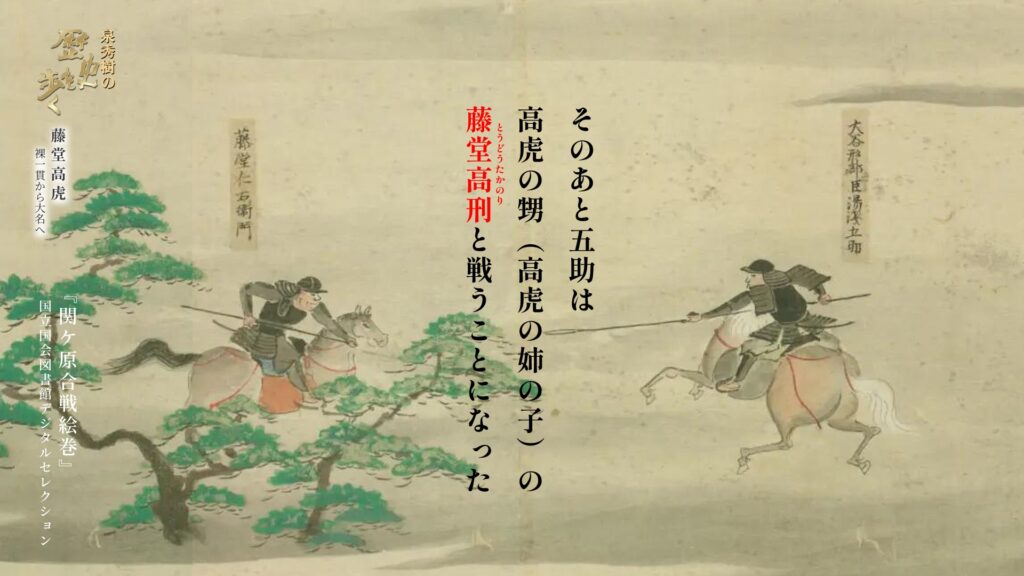 そのあと五助は
高虎の甥（高虎の姉の子）の
藤堂高刑と戦うことになった
とうどうたかのり
大谷刑部臣湯浅五助
藤堂仁右衛門
泉秀樹の
歴史を歩く
藤堂高虎
裸一貫から大名へ
『関ヶ原合戦絵巻』
国立国会図書館デジタルセレクション